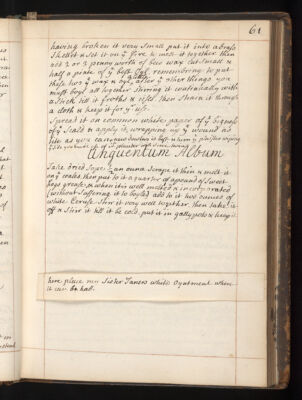 61
having broken it very small put it into a brass
Skellet & set it on ye fire to melt it together then
add 2 or 3 penny worth of bees wax cut small &
half a pinte of ye best Oyl remembring to put
these two ye wax & oyl after ye other things you
must boyl all together stirring it continually with
a Stick till it froths & rises then strain it through
a cloth & keep it for ye use.
Spread it on common white paper of ye bigness
of ye Scald & apply it, wrapping up ye wound as
Unguentum Album
Take dried an ounce Scrape it then melt it
on ye coales, then put to it a quarter of a pound of sweet
hogs grease & when it is well melted & incorporated
(without suffering it to boyle) add to it two ounces of
white Ceruse Stirr it very well together, then take it
off & Stirr it till it be cold, put it in gallypots & keep it
here place mu Sister Tanses white Oyntment when
it can be had.